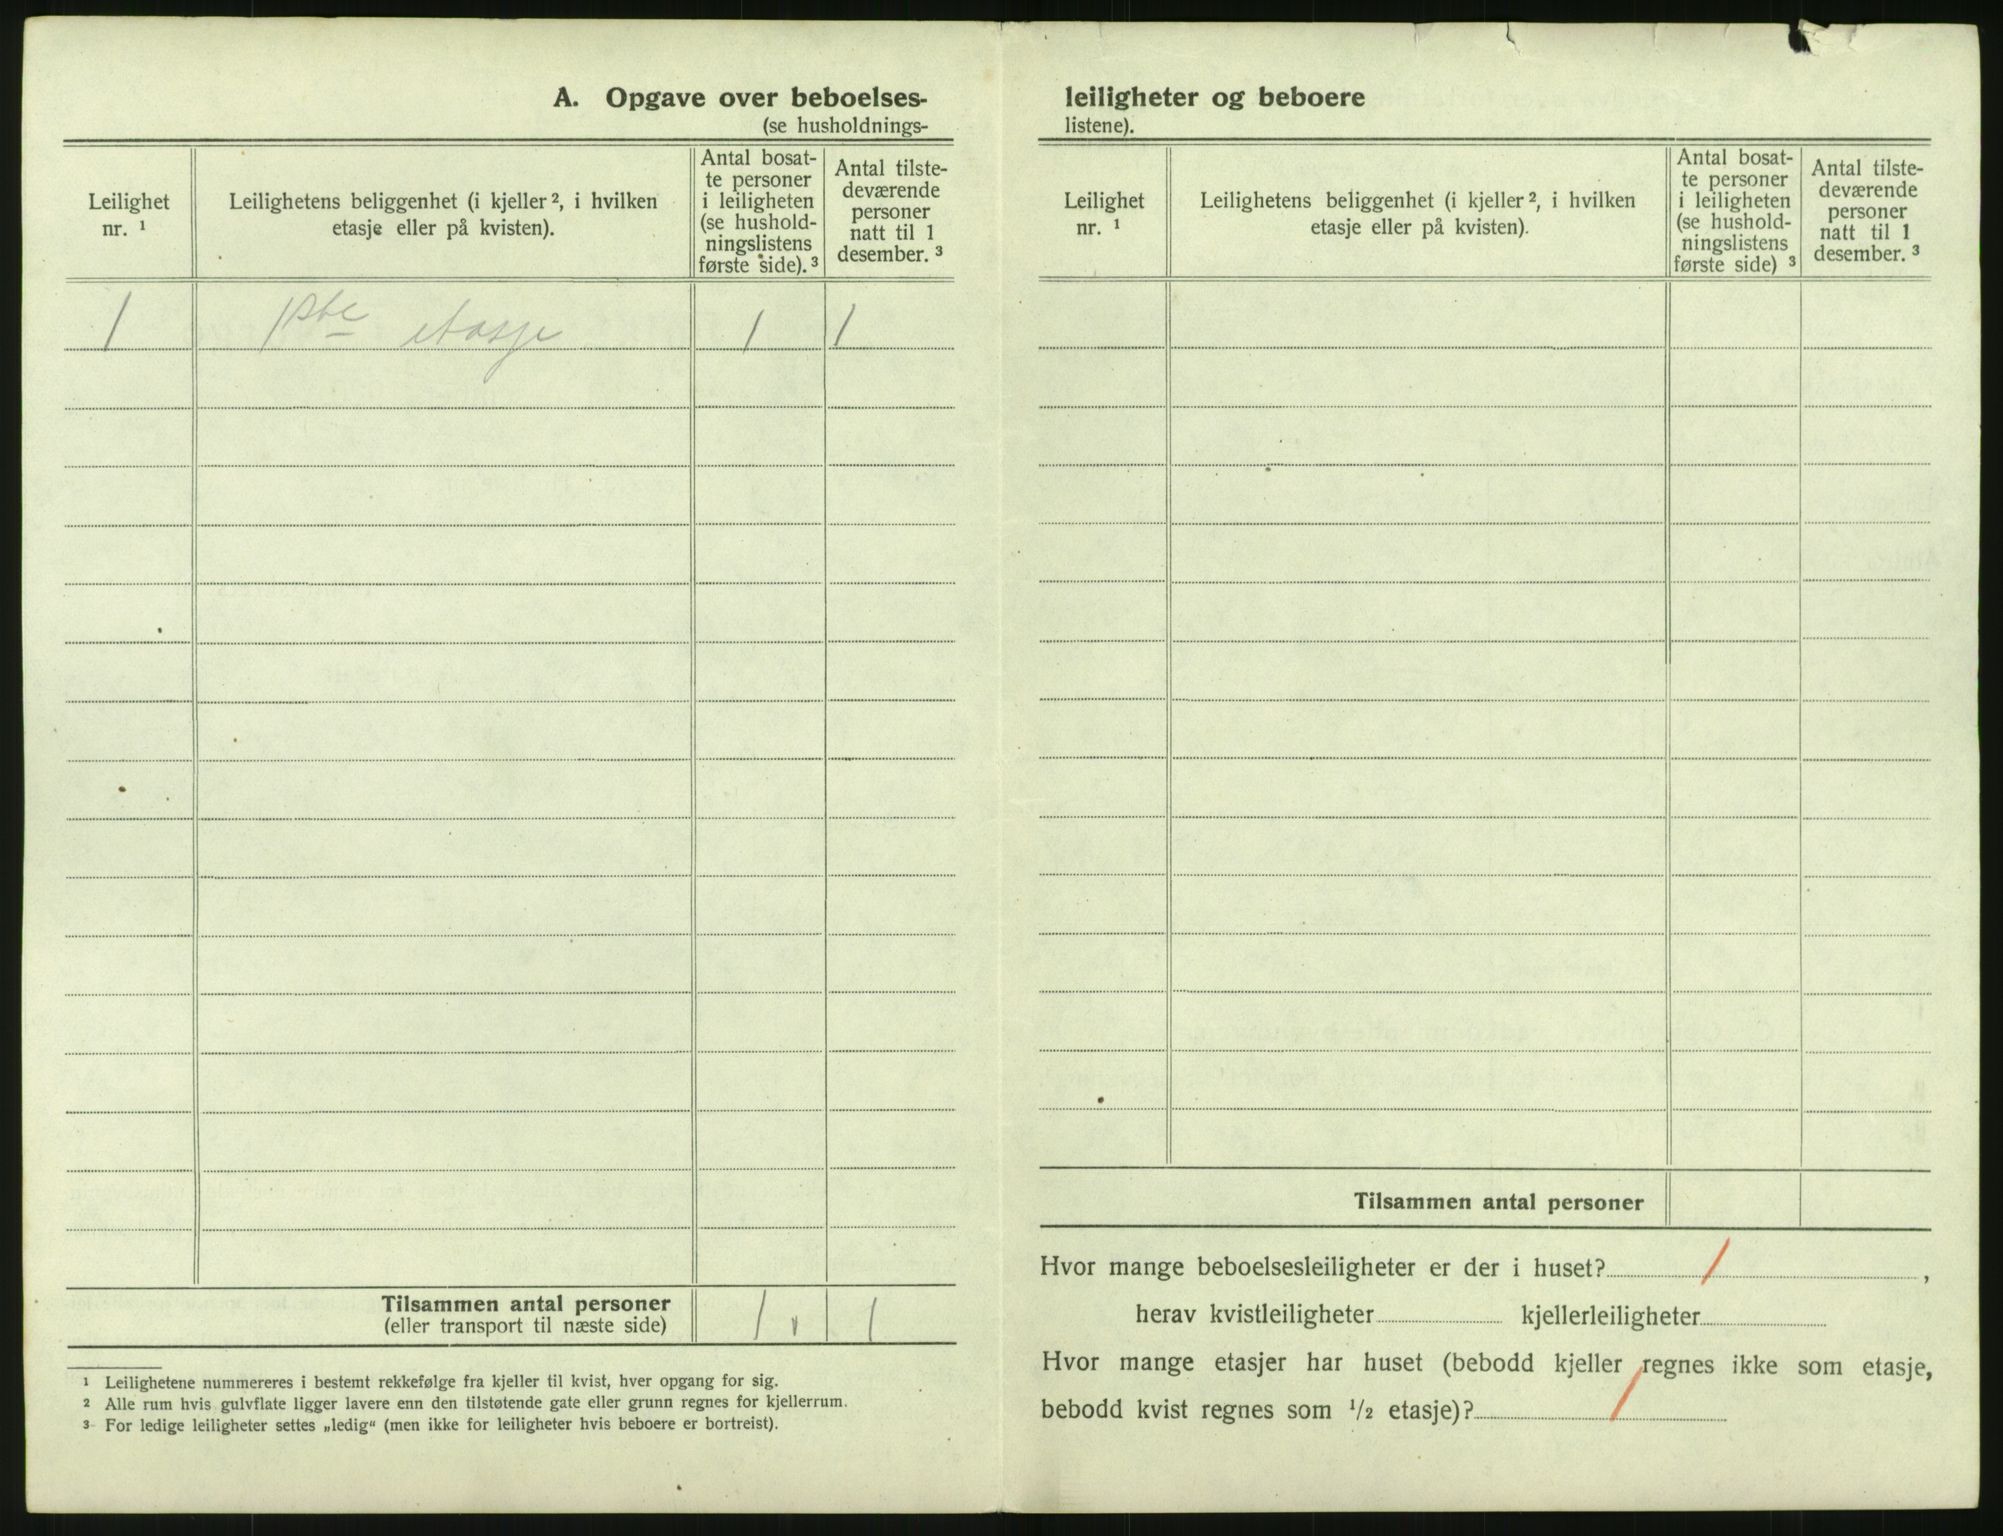 A. Opgave over beboelses-
(se husholdnings-
Leilighet
nr. ¹
Leilighetens beliggenhet (i kjeller ², i hvilken
etasje eller på kvisten).
Antal bosat-
te personer
i leiligheten
(se hushold-
ningslistens
første side). ³
Antal tilste-
deværende
personer
natt til 1
desember. ³
1 1ste etasje 1 1
Tilsammen antal personer
(eller transport til næste side)
1 1
¹ Leilighetene nummereres i bestemt rekkefølge fra kjeller til kvist, hver opgang for sig.
² Alle rum hvis gulvflate ligger lavere enn den tilstøtende gate eller grunn regnes for kjellerrum.
³ For ledige leiligheter settes „ledig“ (men ikke for leiligheter hvis beboere er bortreist).
leiligheter og beboere
listene).
Leilighet
nr. ¹
Leilighetens beliggenhet (i kjeller ², i hvilken
etasje eller på kvisten).
Antal bosat-
te personer
i leiligheten
(se hushold-
ningslistens
første side) ³
Antal tilste-
deværende
personer
natt til 1
desember. ³
Tilsammen antal personer
Hvor mange beboelsesleiligheter er der i huset? 1 ,
herav kvistleiligheter kjellerleiligheter
Hvor mange etasjer har huset (bebodd kjeller regnes ikke som etasje,
bebodd kvist regnes som ½ etasje)? 1